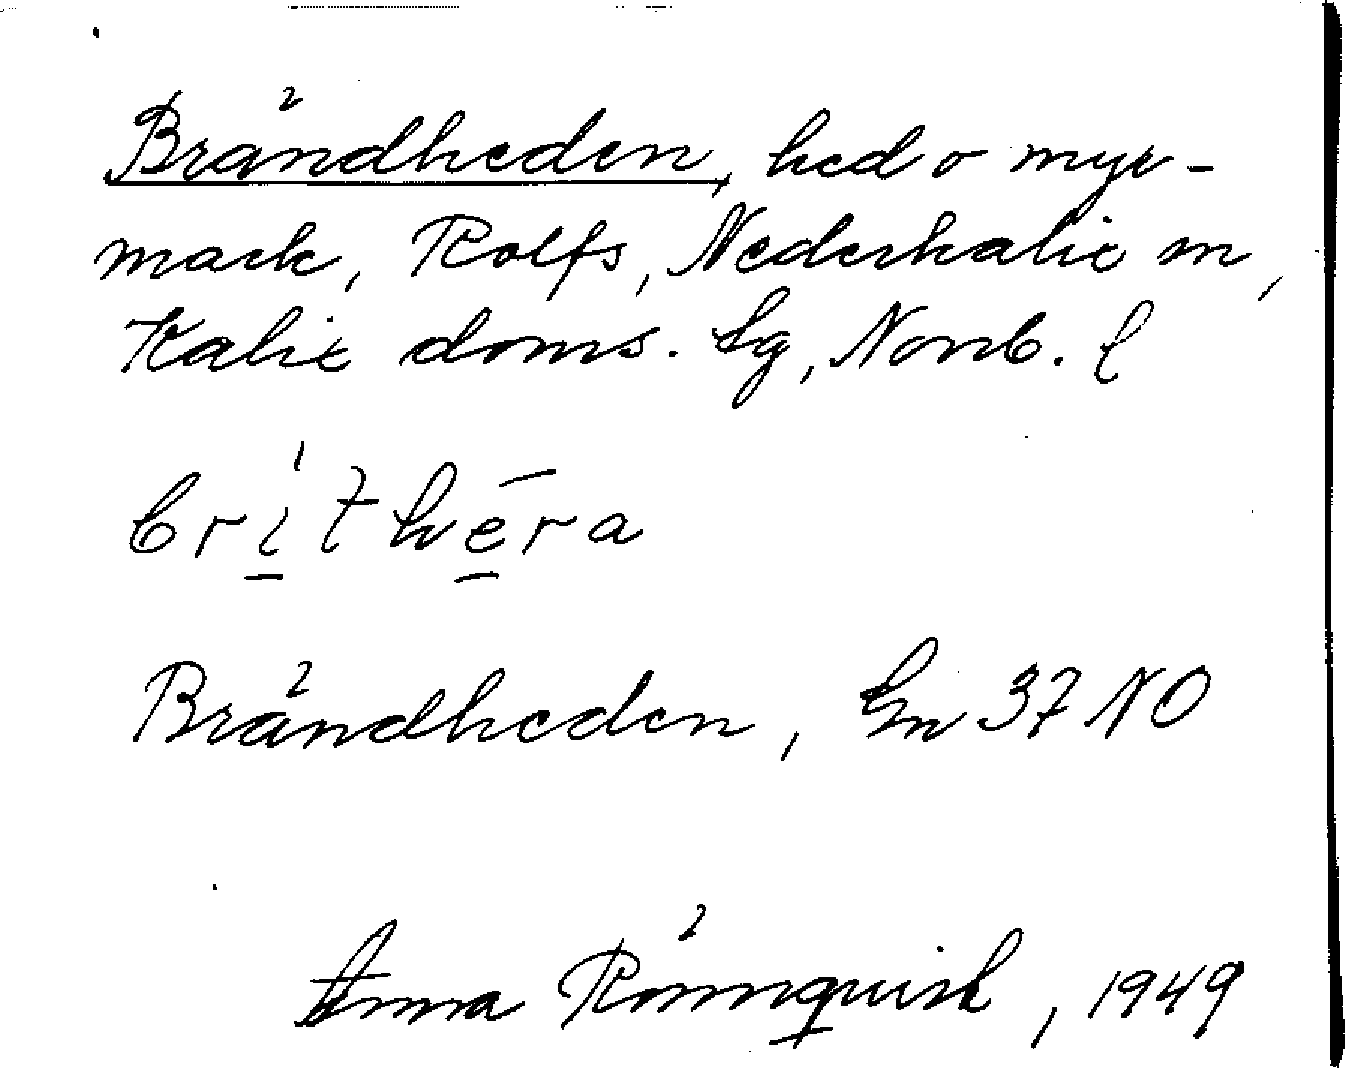 Brändheden, hed o myr-
mark, Rolfs, Nederkalix sn,
Kalix doms. sg, Nonb. l
brithēra
Brändheden, Gn 37 NO
Anna Rönnquist, 1949